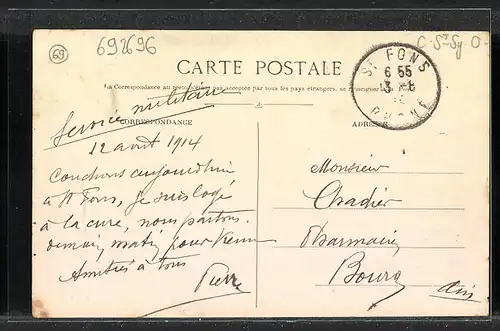 69
692696
C-St Sy O-
CARTE POSTALE
La Correspondance au recto n'est pas acceptée par tous les pays étrangers. se renseigner
ST FONS
6 55
RHONE
CORRESPONDANCE
ADRESSE
Service militaire
12 avril 1914
Couchons aujourdhui
à St Fons, je suis logé
à la cure, nous partons
demain matin pour
Amitiés à tous
Pierre
Monsieur
Chadier
Pharmacien
Bourg
Ain